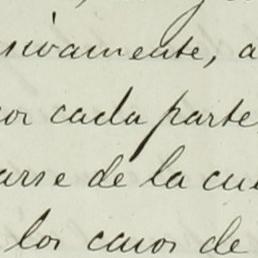 sivamente, a
por cada parte
arse de la cu
los casos de